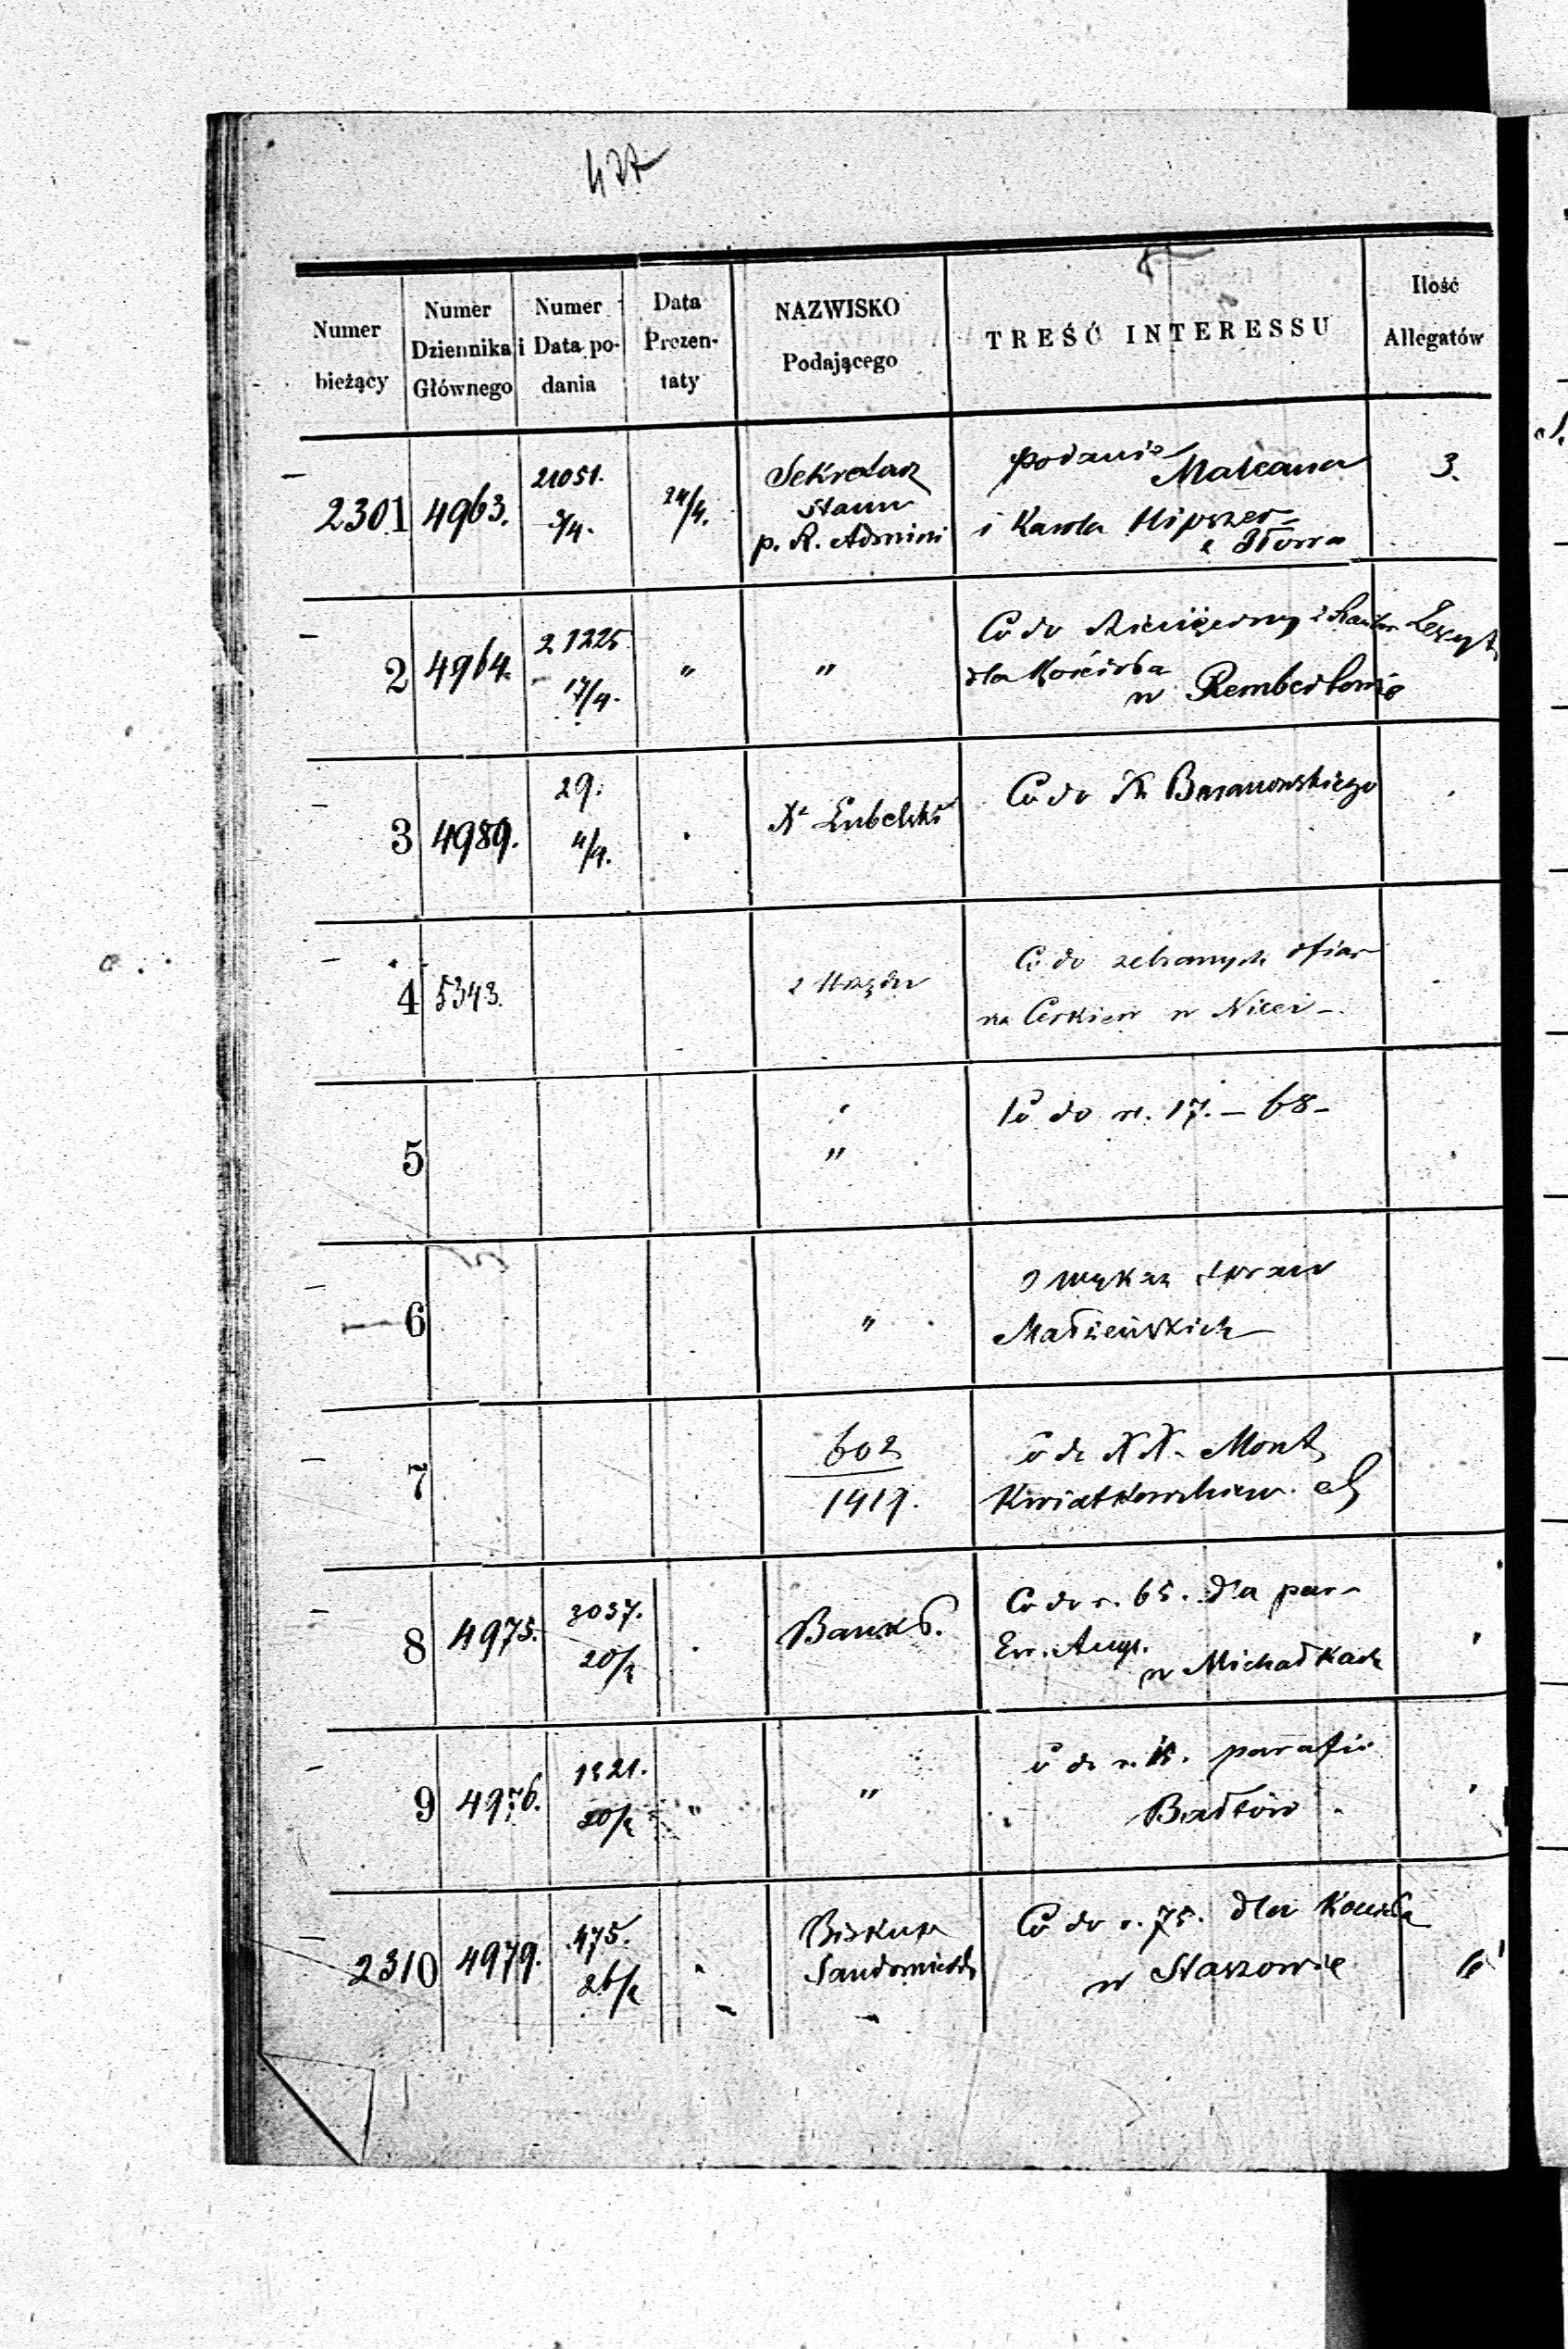 477
Numer bieżący
Numer Dziennika Głównego
Numer i Data podania
Data Prezentaty
NAZWISKO Podającego
TREŚĆ INTERESSU
Ilość Allegatów
2301 4963. 21051. 3/4. 24/4. Sekretarz Stanu p. R. Admini podanie Malcana i Karola 3.
2 4964. 21225 17/4. " " Co do dla Kościoła w Rembertowie Zeszyt
3 4989. 29. 4/4. Xe Lubelski Co do Xa Baranowskiego
4 5343. z Urzędu Co do zebranych ofiar
na Cerkiew w Nicei -
5 " Co do r. 17. - 68 -
6 " O wykaz spraw
Małżeńskich
7 602 1419. Co do XX. Mont
8 4975. 3037. 20/2 Bank P. Co do r. 65. dla par.
Ew. Augs. w Michałkach
9 4976. 1521. 20/2 " " Co do r. parafii
Bałtów
2310 4979. 475. 26/2 Biskup Sandomierski Co do r. 75. dla Kościoła
w Staszowie 6